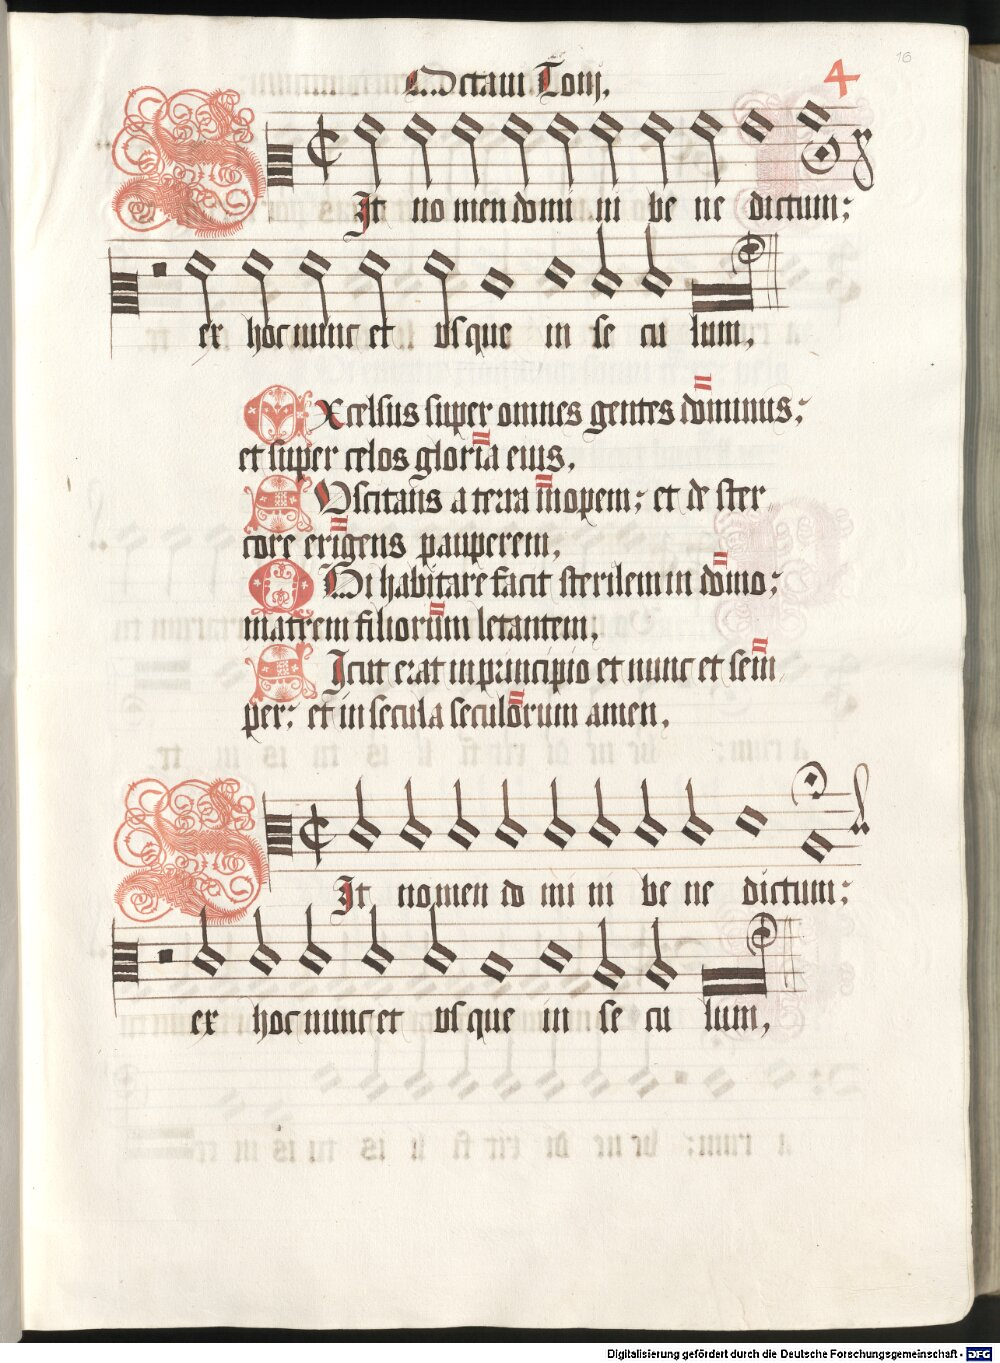 16
4
Octaui Toni,
Sit no men domi ni be ne dictum;
ex hoc nunc et vsque in se cu lum,
Excelsus super omnes gentes dominus;
et super celos gloria eius,
Suscitans a terra inopem; et de ster
core erigens pauperem,
Qui habitare facit sterilem in domo;
matrem filiorum letantem,
Sicut erat in principio et nunc et sem
per; et in secula seculorum amen,
Sit nomen do mi ni be ne dictum;
ex hoc nunc et vsque in se cu lum,
Digitalisierung gefördert durch die Deutsche Forschungsgemeinschaft - DFG